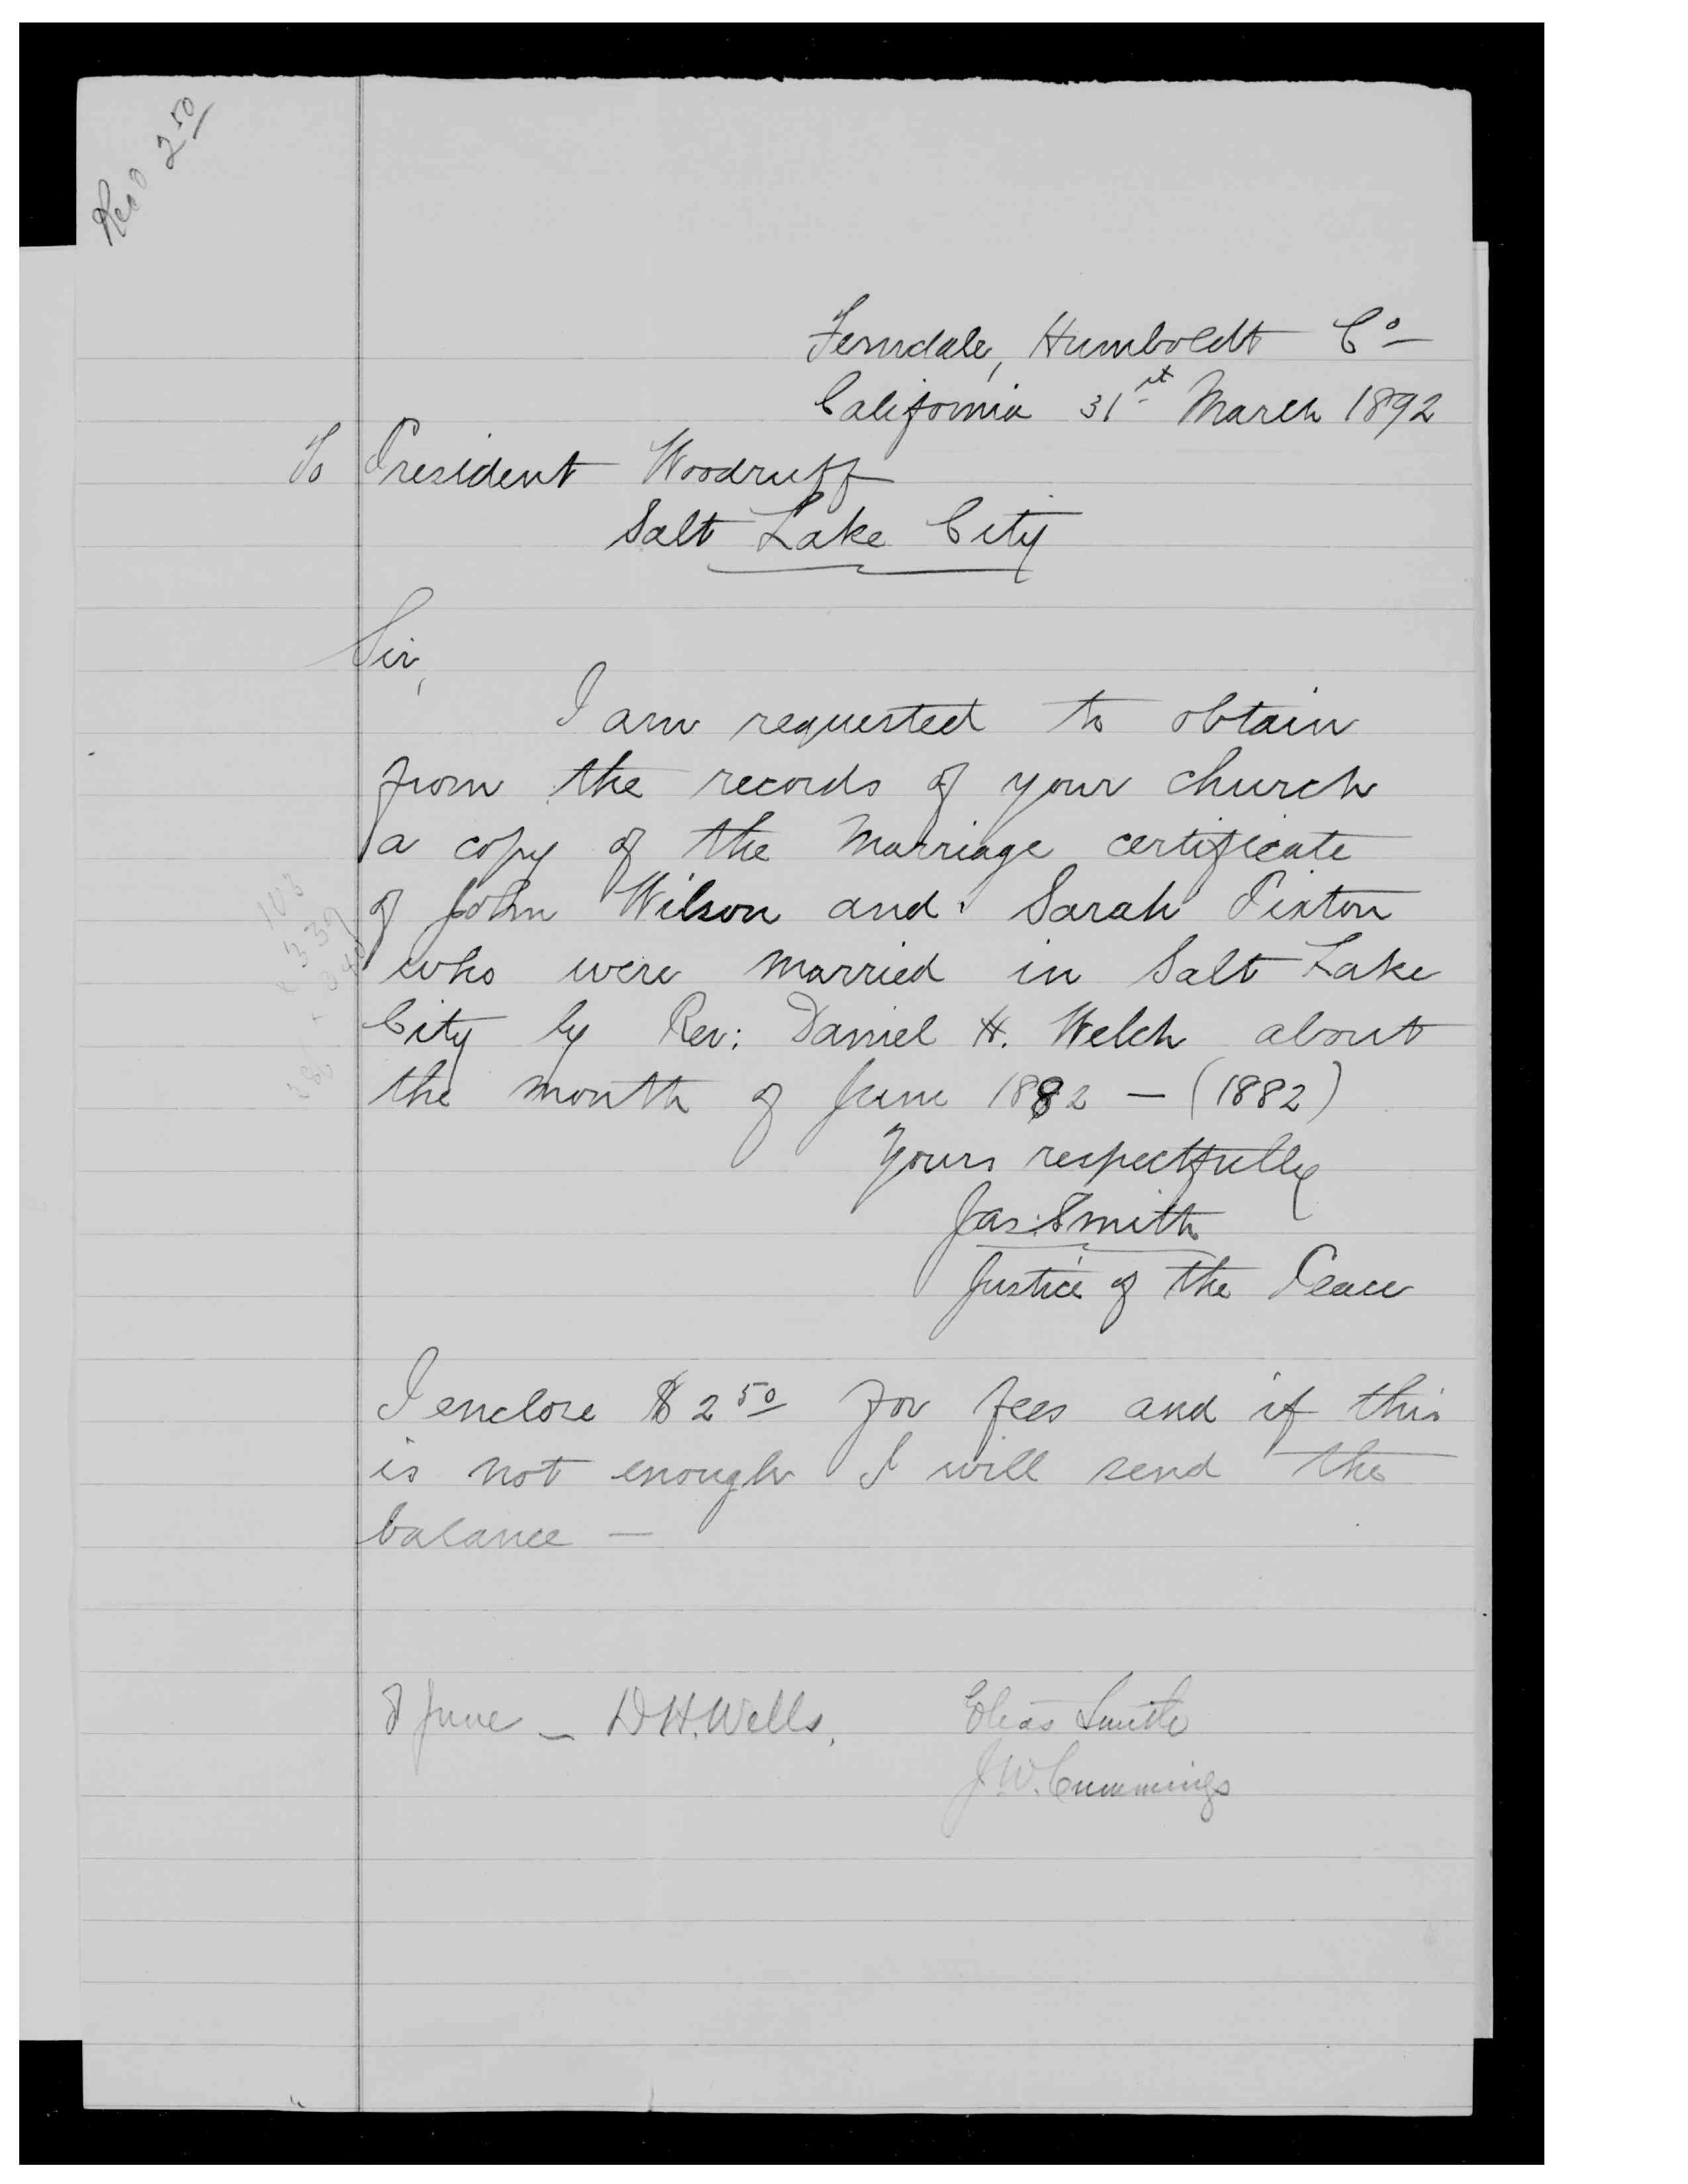 Recd 2 50
Ferndale, Humboldt Co
California 31st March 1892
To President Woodruff
Salt Lake City
Sir,
I am requested to obtain
from the records of your church
a copy of the marriage certificate
of John Wilson and Sarah Pixton
who were married in Salt Lake
City by Rev: Daniel H. Welch about
the month of June 1882 — (1882)
Yours respectfully
Jas: Smith
Justice of the Peace
I enclose $2 50 for fees and if this
is not enough I will send the
balance —
8 June — D. H. Wells.
Elias Smith
J. W. Cummings